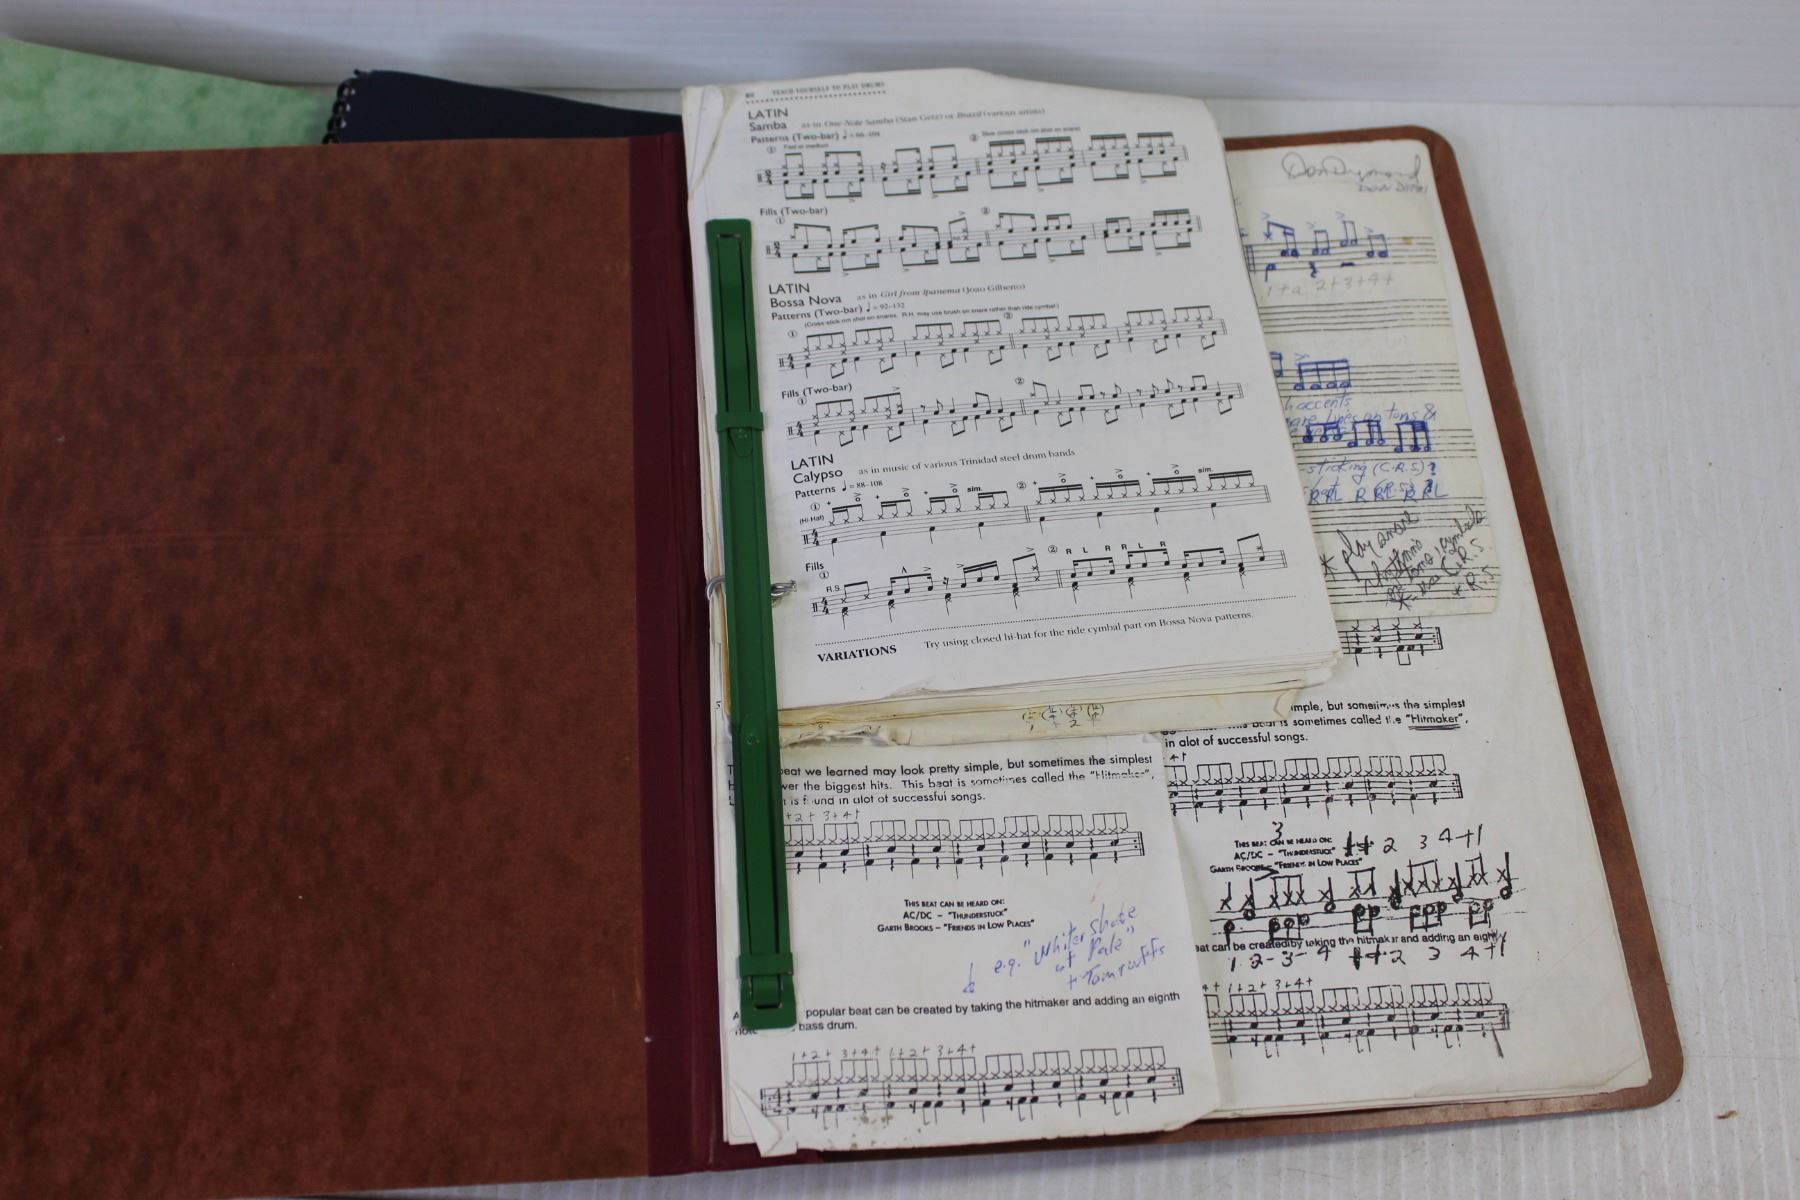 60 TEACH YOURSELF TO PLAY DRUMS
LATIN
Samba as in One-Note Samba (Stan Getz) or Brazil (various artists)
Patterns (Two-bar) ♩ = 66–108
① Fast or medium ② Slow (cross-stick rim shot on snare)
Fills (Two-bar)
① ②
LATIN
Bossa Nova as in Girl from Ipanema (Joao Gilberto)
Patterns (Two-bar) ♩ = 92–132
(Cross-stick rim shot on snares. R.H. may use brush on snare rather than ride cymbal.)
① ②
Fills (Two-bar)
① ②
LATIN
Calypso as in music of various Trinidad steel drum bands
Patterns ♩ = 88–108
① sim. ② sim.
(Hi-Hat)
Fills
① ② R L R R L R
R.S.
VARIATIONS Try using closed hi-hat for the ride cymbal part on Bossa Nova patterns.
Don Dymond
1 + a 2 + 3 + 4 +
accents
sticking (C.R.S.)?
RRL R RL R RL
* play snare
eat we learned may look pretty simple, but sometimes the simplest
ver the biggest hits. This beat is sometimes called the "Hitmaker",
is found in alot of successful songs.
+ 2 + 3 + 4 +
THIS BEAT CAN BE HEARD ON:
AC/DC – "THUNDERSTUCK"
GARTH BROOKS – "FRIENDS IN LOW PLACES"
e.g. "Whiter shade
of Pale"
+ Tom ruffs
popular beat can be created by taking the hitmaker and adding an eighth
note bass drum.
1 + 2 + 3 + 4 + 1 + 2 + 3 + 4 +
imple, but sometimes the simplest
is sometimes called the "Hitmaker",
in alot of successful songs.
4 +
3
THIS BEAT CAN BE HEARD ON:
AC/DC – "THUNDERSTUCK" 2 3 4 + 1
GARTH BROOKS – "FRIENDS IN LOW PLACES"
eat can be created by taking the hitmaker and adding an eighth
1 - 2 - 3 - 4 2 3 4 + 1
4 + 1 + 2 + 3 + 4 +